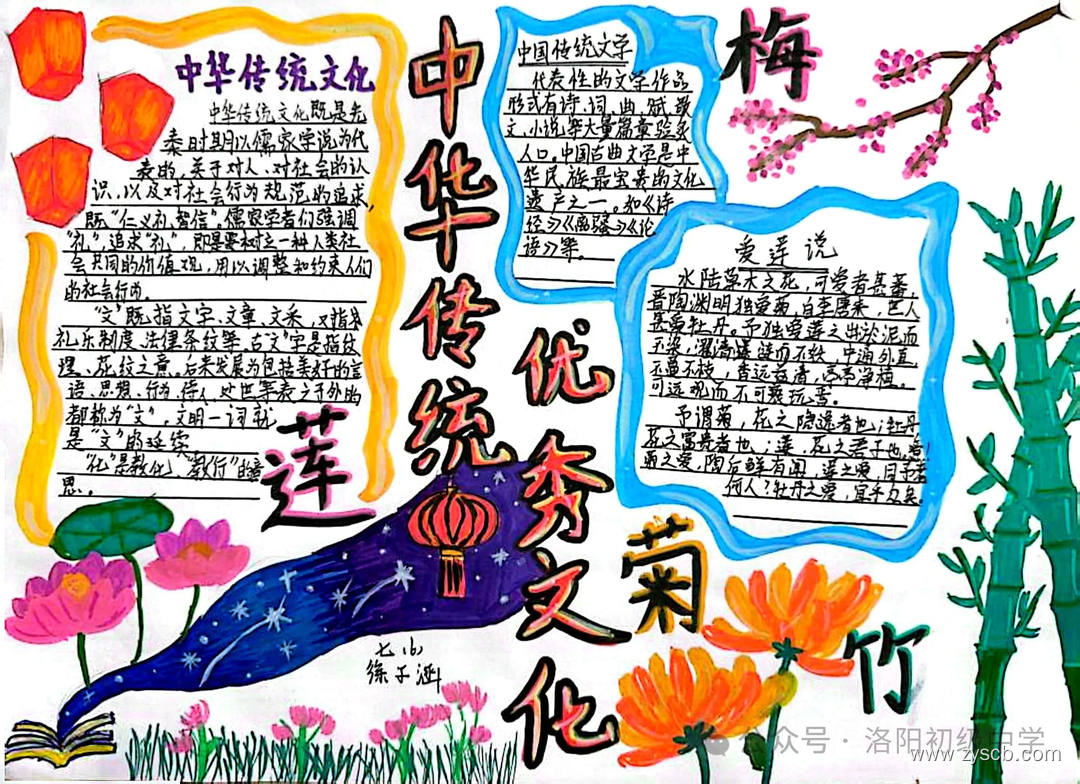 中华传统文化
中华传统文化既是先
秦时期以儒家学说为代
表的,关于对人、对社会的认
识,以及对社会行为规范的追求,
既“仁义礼智信”。儒家学者们强调
“礼”,追求“礼”,即是要树立一种人类社
会共同的价值观,用以调整和约束人们
的社会行为。
“文”既指文字、文章、文采,又指
礼乐制度、法律条纹等。古“文”字是指纹
理、花纹之意。后来发展为包括美好的言
语、思想、行为、待人处世等表之于外的
都称为“文”。文明一词就
是“文”的延续
“化”是教化、“教行”的意
思。
莲
中华传统
优秀文化
中国传统文学
代表性的文学作品
形式有诗、词、曲、赋、散
文、小说等大量篇章脍炙
人口。中国古典文学是中
华民族最宝贵的文化
遗产之一。如《诗
经》《离骚》《论
语》等。
梅
爱莲说
水陆草木之花,可爱者甚蕃,
晋陶渊明独爱菊,自李唐来,世人
甚爱牡丹。予独爱莲之出淤泥而
不染,濯清涟而不妖,中通外直
不蔓不枝,香远益清,亭亭净植。
可远观而不可亵玩焉。
予谓菊,花之隐逸者也;牡丹
花之富贵者也;莲,花之君子也,噫!
菊之爱,陶后鲜有闻,莲之爱,同予者
何人?牡丹之爱,宜乎众矣。
菊
竹
七(6)
徐子涵
公众号·洛阳初级中学
www.zyscb.com